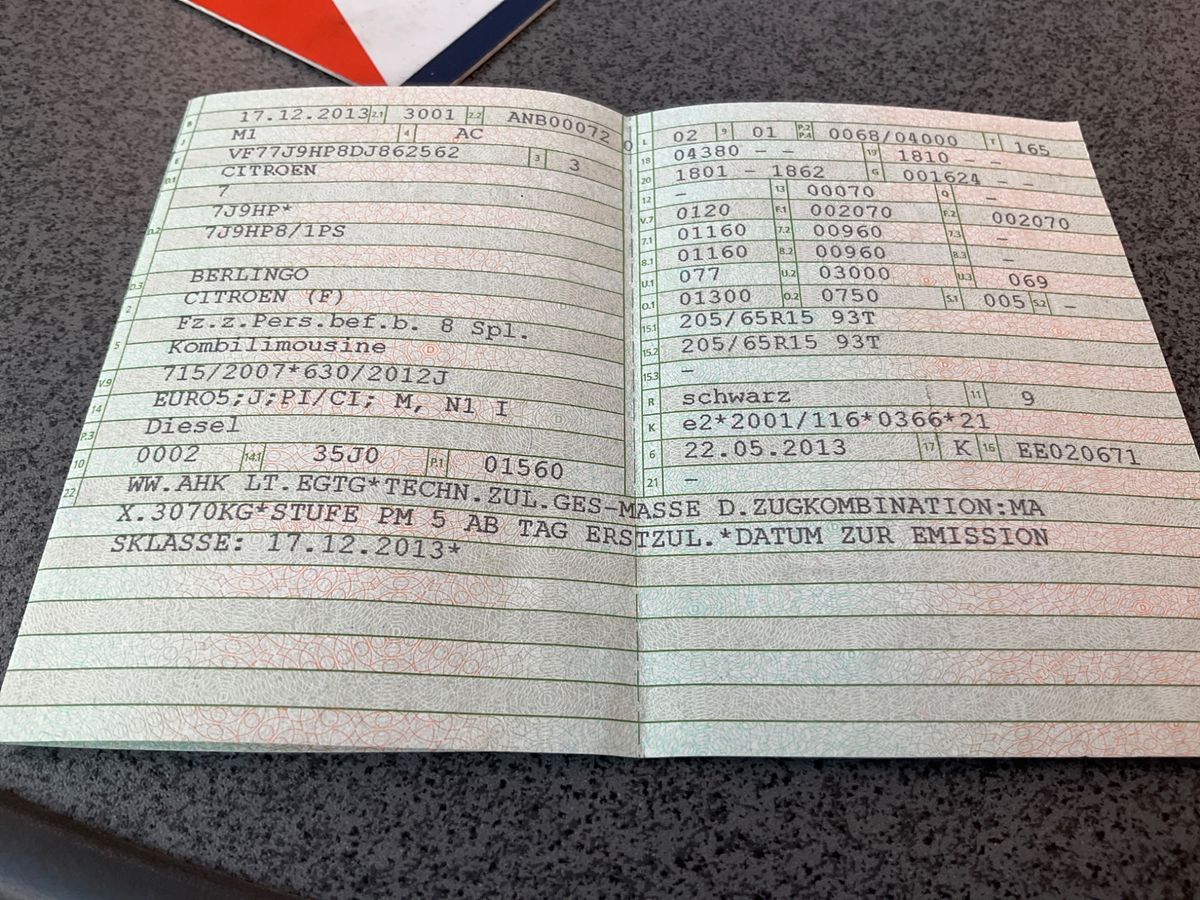 B 17.12.2013 2.1 3001 2.2 ANB00072 0
J M1 4 AC
E VF77J9HP8DJ862562 3 3
D.1 CITROEN
7
7J9HP*
D.2 7J9HP8/1PS
D.3 BERLINGO
2 CITROEN (F)
5 Fz.z.Pers.bef.b. 8 Spl.
Kombilimousine
V.9 715/2007*630/2012J
14 EURO5;J;PI/CI; M, N1 I
P.3 Diesel
10 0002 14.1 35J0 P.1 01560
L 02 9 01 P.2 P.4 0068/04000 T 165
18 04380 - - 19 1810 - -
20 1801 - 1862 G 001624 - -
12 - 13 00070 Q -
V.7 0120 F.1 002070 F.2 002070
7.1 01160 7.2 00960 7.3 -
8.1 01160 8.2 00960 8.3 -
U.1 077 U.2 03000 U.3 069
O.1 01300 O.2 0750 S.1 005 S.2 -
15.1 205/65R15 93T
15.2 205/65R15 93T
15.3 -
R schwarz 11 9
K e2*2001/116*0366*21
6 22.05.2013 17 K 16 EE020671
21 -
22 WW.AHK LT.EGTG*TECHN.ZUL.GES-MASSE D.ZUGKOMBINATION:MA
X.3070KG*STUFE PM 5 AB TAG ERSTZUL.*DATUM ZUR EMISSION
SKLASSE: 17.12.2013*